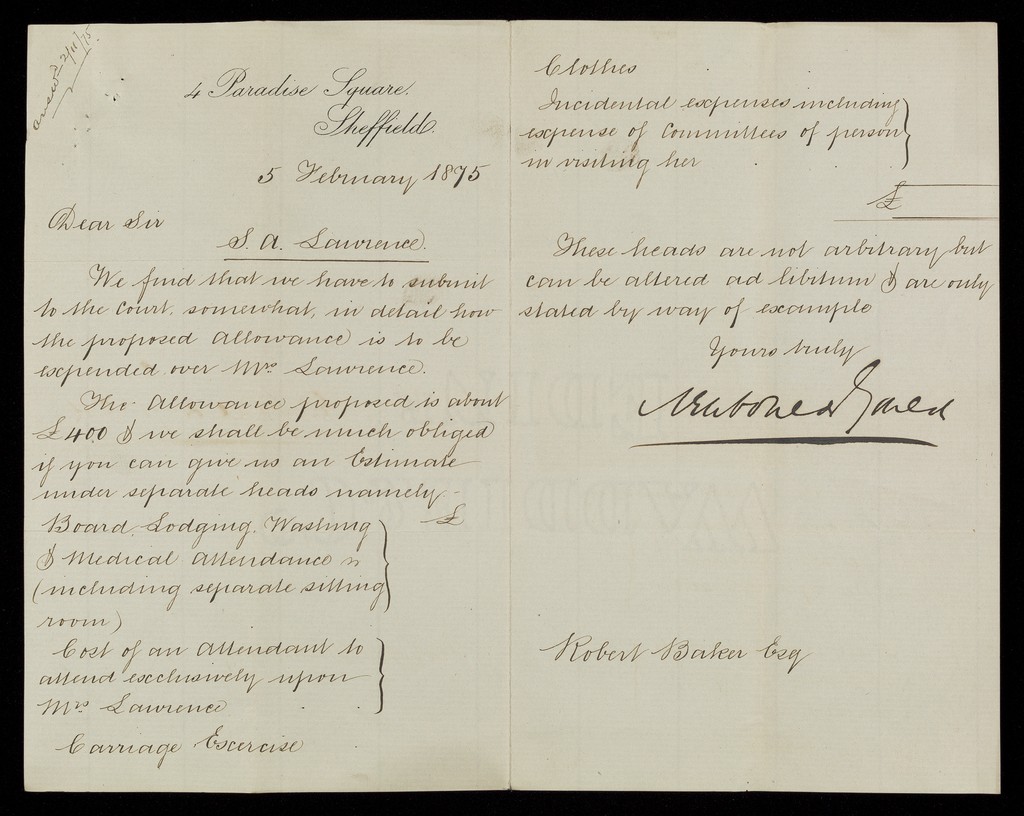 answd 2/11/75.
4 Paradise Square.
Sheffield.
5 February 1875
Dear Sir
S. A. Lawrence.
We find that we have to submit
to the Court, somewhat, in detail how
the proposed Allowance is to be
expended over Mrs Lawrence.
The Allowance proposed is about
£400 & we shall be much obliged
if you can give us an Estimate
under separate heads namely-
Board, Lodging, Washing £
& Medical Attendance
(including separate sitting
room)
Cost of an Attendant to
attend exclusively upon
Mrs Lawrence
Carriage Exercise
Clothes
Incidental expenses including
expense of Committees of person
in visiting her
£
These heads are not arbitrary but
can be altered ad libitum & are only
stated by way of example
Yours truly
Robert Baker Esq